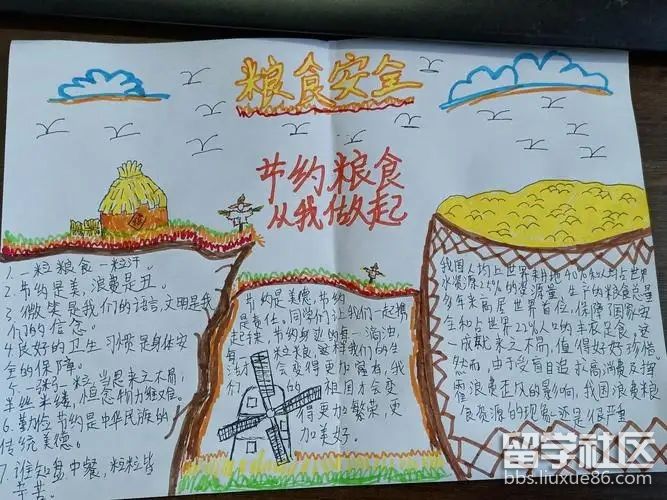 粮食安全
节约粮食
从我做起
1.一粒粮食一粒汗。
2.节约是美,浪费是丑。
3.微笑是我们的语言,文明是我
们的信念。
4.良好的卫生习惯是身体安
全的保障。
5.一粥一粒,当思来之不易,
半丝半缕,恒念物力维艰。
6.勤俭节约是中华民族的
传统美德。
7.谁知盘中餐,粒粒皆
辛苦。
节约是美德,节约
是责任,同学们让我们一起携
起手来,节约身边的每一滴油
每一粒粮,这样我们的生
活才会变得更加富有,我
们的祖国才会变
得更加繁荣,更
加美好。
我国人均占世界耕地40%
水资源25%的资源量,生产的粮食总量
多年来高居世界首位,保障了国家安
全和占世界22%人口的丰衣足食,这
一成就来之不易,值得好好珍惜。
然而,由于受盲目追求高消费及挥
霍浪费歪风的影响,我国浪费粮
食资源的现象还是很严重
留学社区
bbs.liuxue86.com